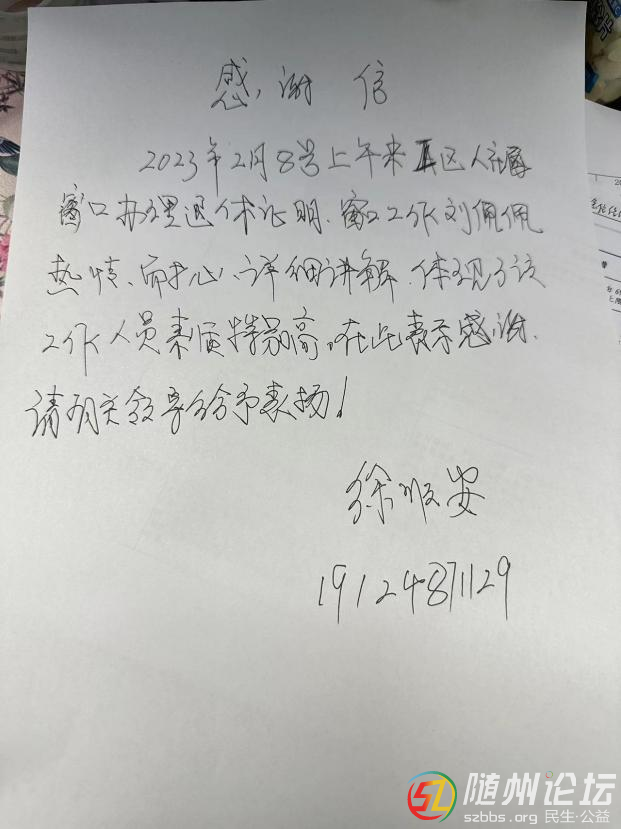 感谢信
2023年2月8号上午来区人社局
窗口办理退休证明、窗口工作刘佩佩
热情、耐心、详细讲解.体现了该
工作人员素质特别高,在此表示感谢.
请有关领导给予表扬!
徐顺安
19124871129
随州论坛
szbbs.org 民生·公益